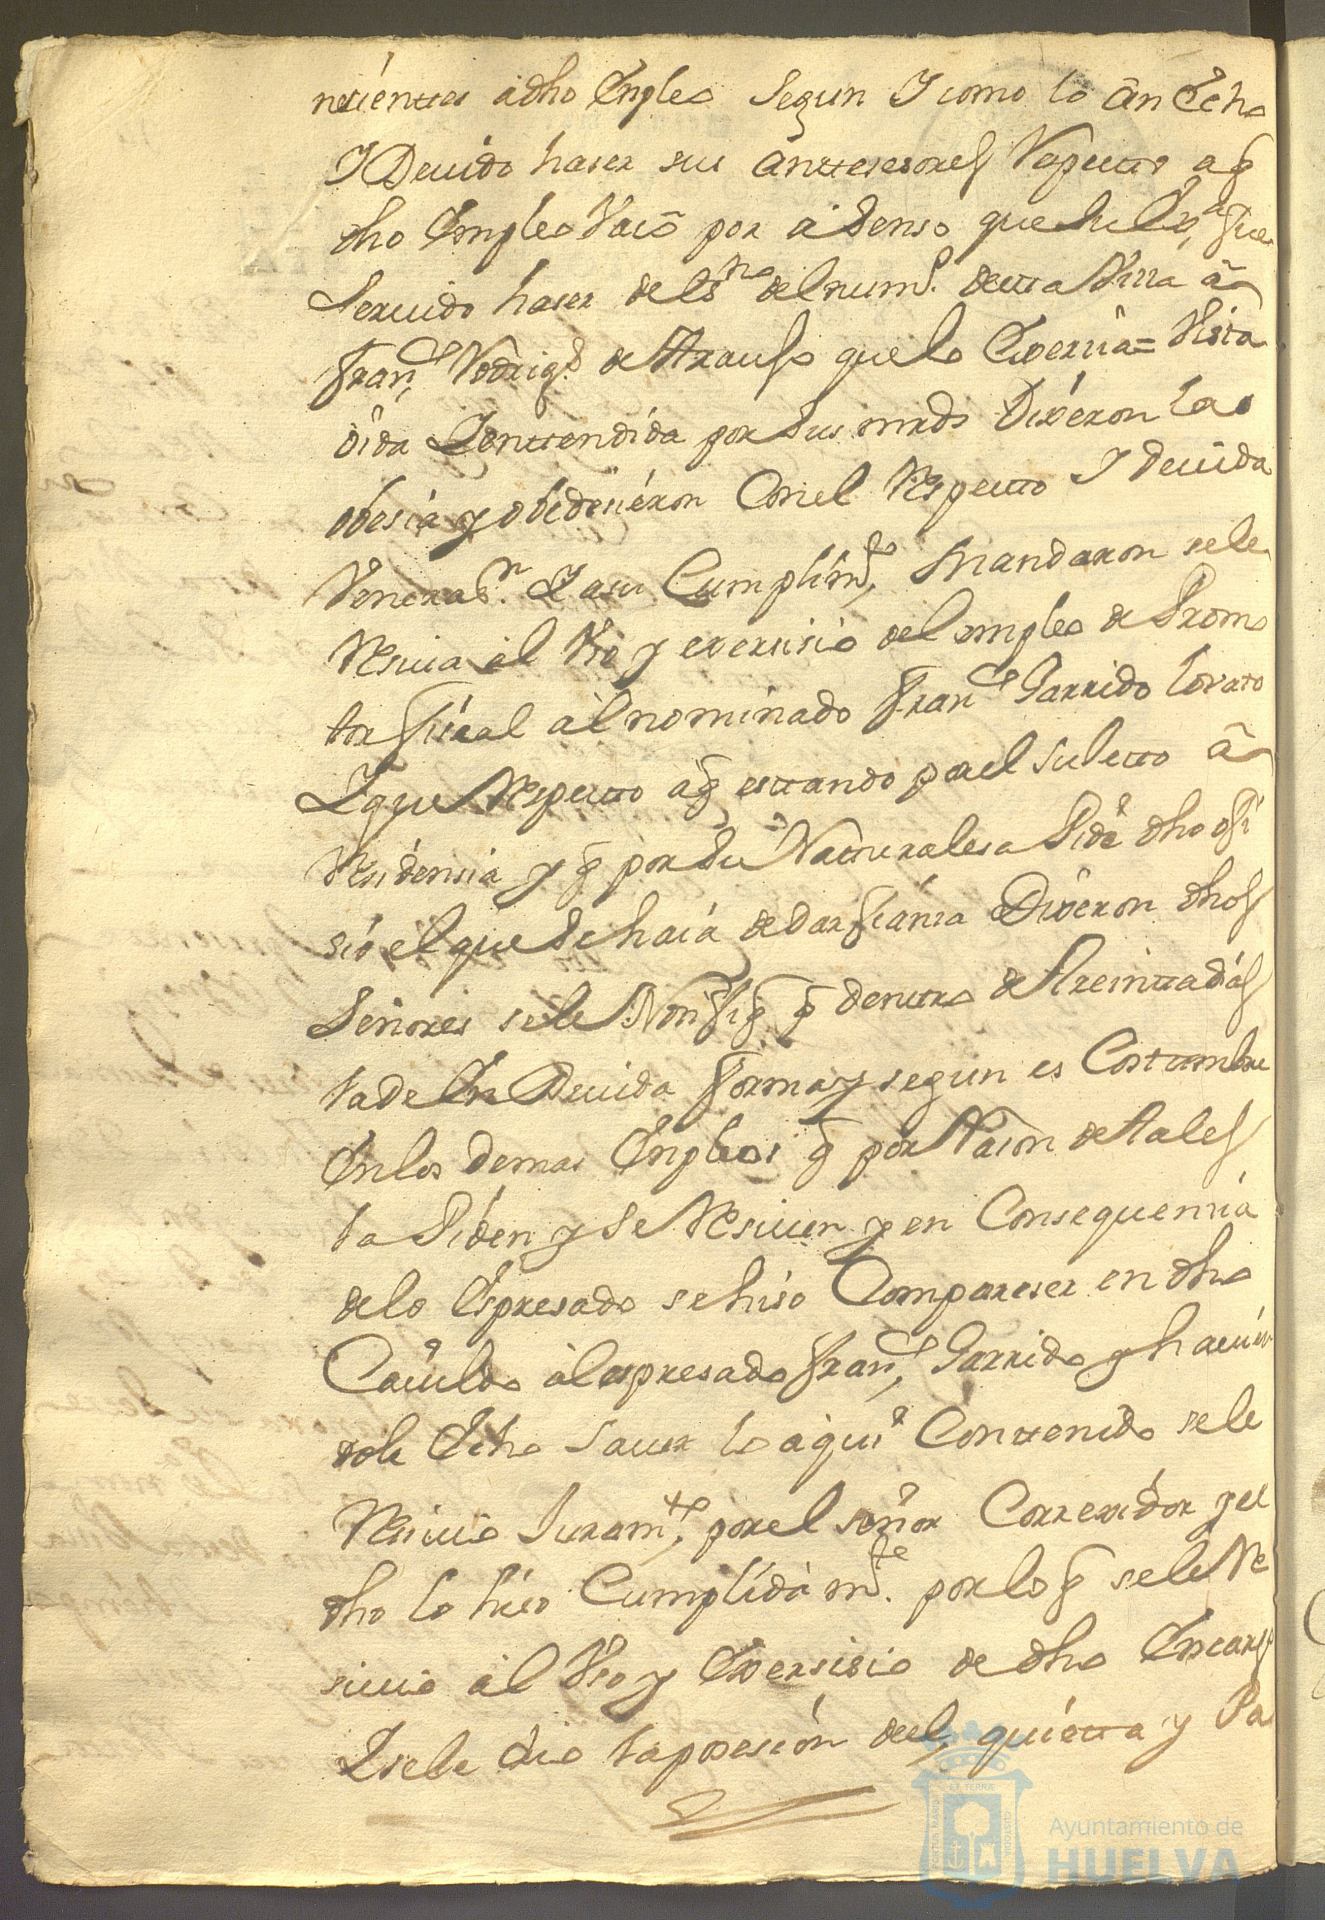 necienttes a dho Enpleo Segun Y como lo ân Echo
Y Deuido haser sus Anttesesores Respecto a q̃
dho Empleo Vacó por a senso que Su Exª fue
Seruido haser de Essno del numº. destta Villa â
Franco Rodrigs de Arauso que lo Exersia = Vista
Oida Y enttendida por Sus mrds Dixeron la
obesia y obedesieron Con el Respecto Y deuida
Venerasn. Y a su Cumplimto, Mandaron se le
Resiua al Vso y exersisio del empleo de Promo
tor fiscal al nominado Franco Garrido Lovato
Y que Respecto a q̃ esttando por el Suletto â
Residensia y q̃ por Su Naturalesa Pide dho ofi
sio el que Se haia de dar fianza Dixeron dhos
Señores se le Notifiq q̃ denttro de Treintta dias
la de En Deuida forma y segun es Costumbre
En los demas Enpleos q̃ por Rason de tales
la Piden y Se Resiuen y en Consequencia
de lo Espresado se hiso Compareser en dho
Cauildo al espresado Franco, Garrido y hauien
dole Echo Sauer lo aqui Conttenido se le
Resiuio Juramto, por el señor Correxidor y el
dho lo hiso Cumplidamte. por lo q̃ se le Re
siuio al Vso y Exersisio de dho Encargo
Y se le dio la posesion del, quietta y Pa
Ayuntamiento de
HUELVA